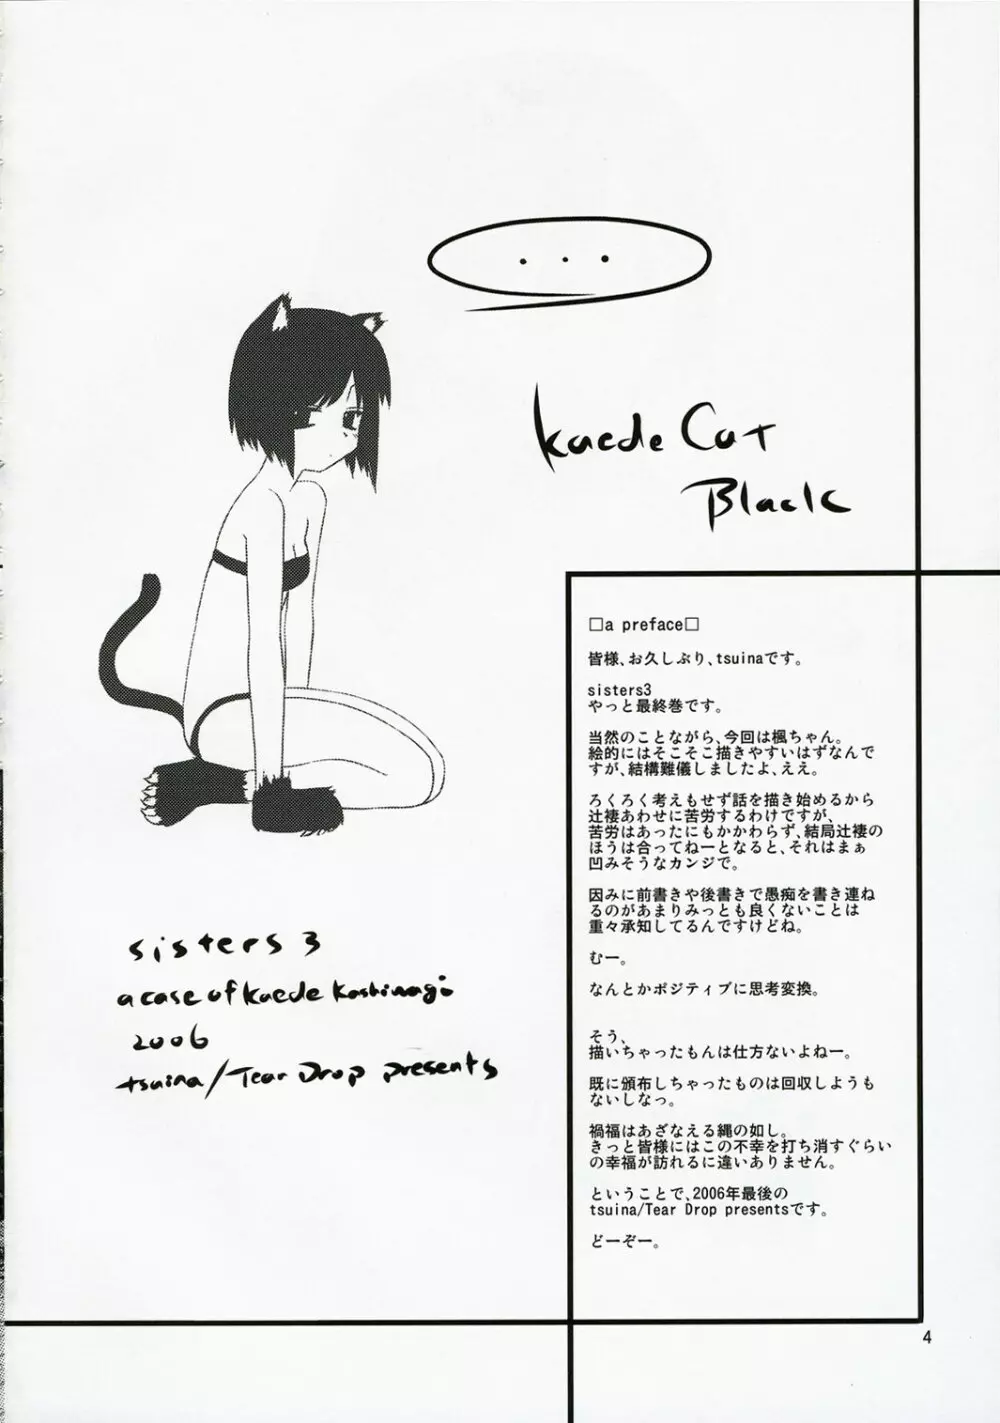 ...
Kaede Cat
Black
□a preface□
皆様、お久しぶり、tsuinaです。
sisters3
やっと最終巻です。
当然のことながら、今回は楓ちゃん。
絵的にはそこそこ描きやすいはずなんで
すが、結構難儀しましたよ、ええ。
ろくろく考えもせず話を描き始めるから
辻褄あわせに苦労するわけですが、
苦労はあったにもかかわらず、結局辻褄の
ほうは合ってねーとなると、それはまぁ
凹みそうなカンジで。
因みに前書きや後書きで愚痴を書き連ね
るのがあまりみっとも良くないことは
重々承知してるんですけどね。
むー。
なんとかポジティブに思考変換。
そう、
描いちゃったもんは仕方ないよねー。
既に頒布しちゃったものは回収しようも
ないしなっ。
禍福はあざなえる縄の如し。
きっと皆様にはこの不幸を打ち消すぐらい
の幸福が訪れるに違いありません。
ということで、2006年最後の
tsuina/Tear Drop presentsです。
どーぞー。
sisters 3
a case of kaede kashinagi
2006
tsuina/Tear Drop presents
4